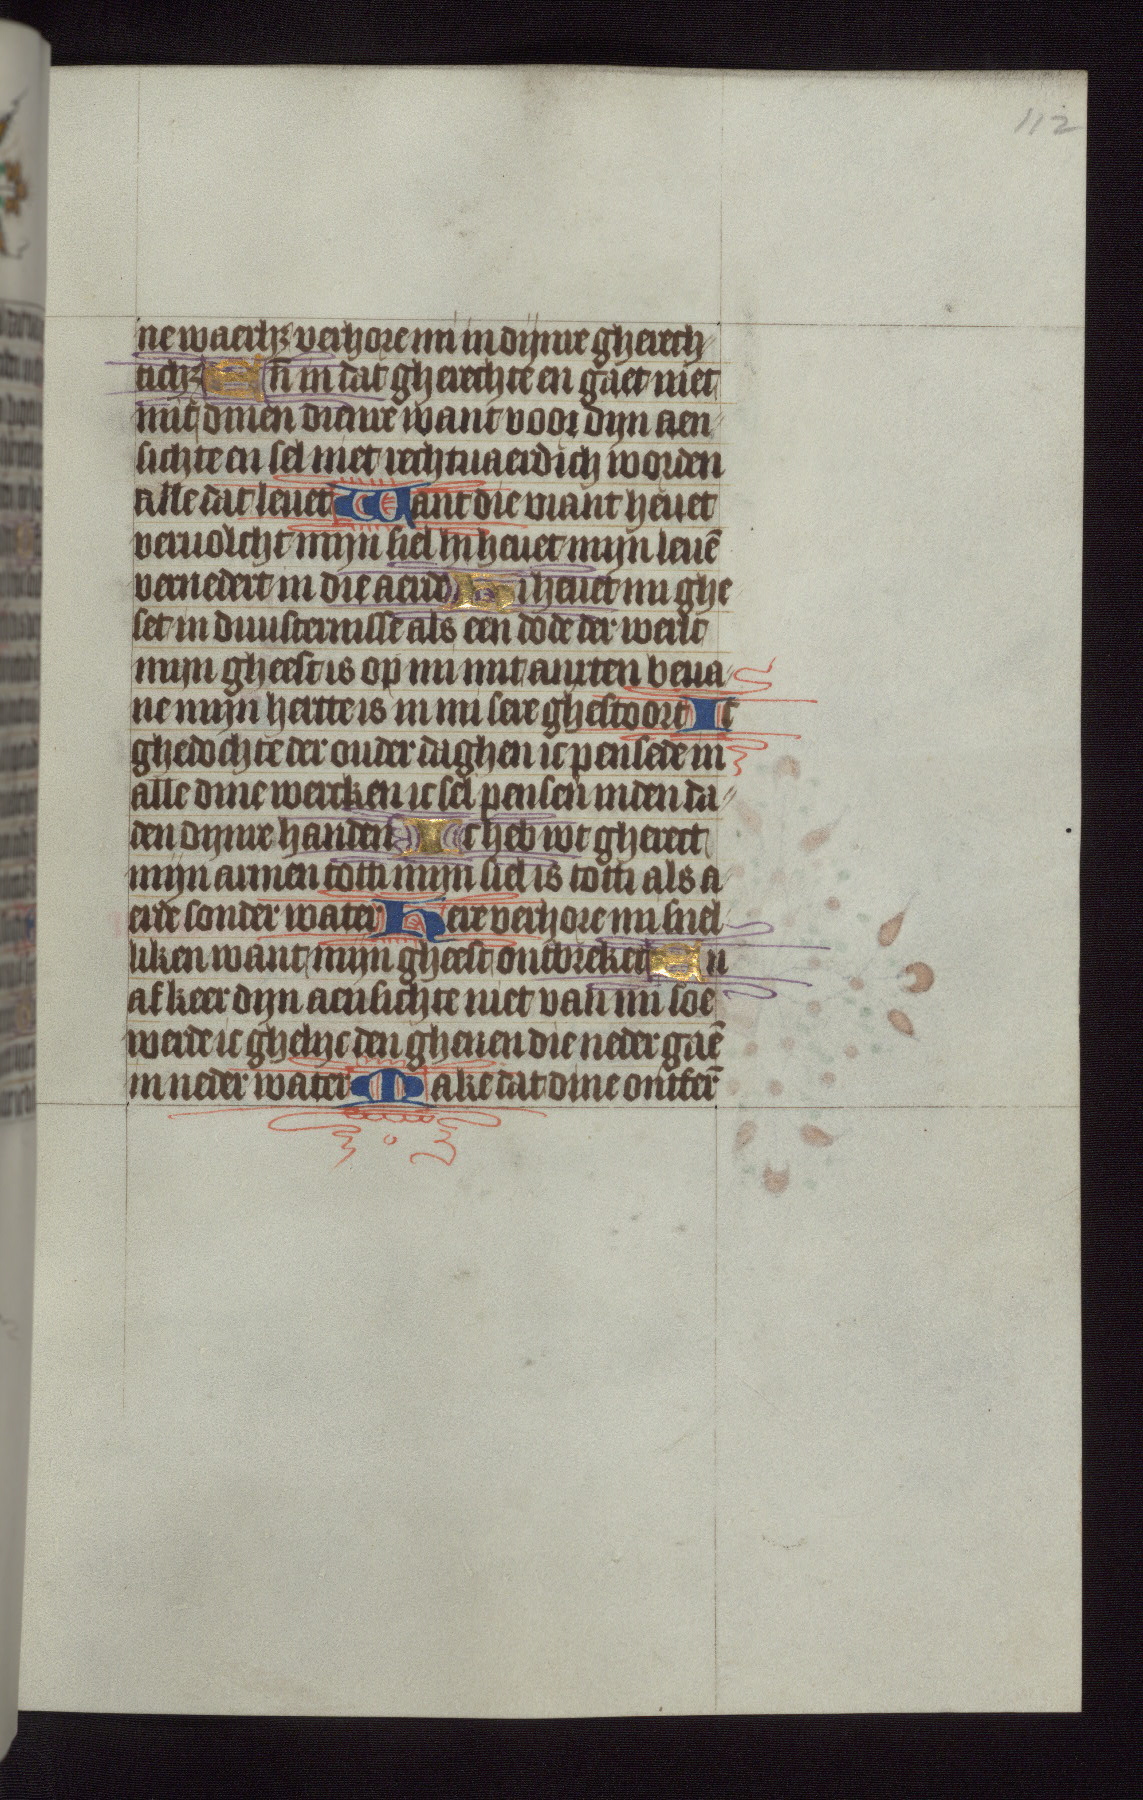 112
ne waerhꝫ verhore mi in dijnre gherech
tichꝫ En̄ in dat gherechte en gaet niet
mit dinen dienre want voor dijn aen
sichte en sel niet rechtuaerdich worden
alle dat leuet Want die viant heuet
veruolcht mijn siel hi heuet mijn leuē
vernedert in die aerde Hi heuet mi ghe
set in duusternisse als een dode der werlt
mijn gheest is op mi mit anxten beua
ne mijn hertte is in mi sere ghestoort Ic
ghedochte der ouder daghen ic pensede in
alle dine wercken ic sel pensen inden da
den dijnre handen Ic heb wt gherect
mijn armen totti mijn siel is totti als a
erde sonder water Here verhore mi snel
liken want mijn gheest ontbreket En
af keer dijn aensichte niet van mi soe
werde ic ghelijc den ghenen die neder gaē
in neder water Make dat dine ontfer̄